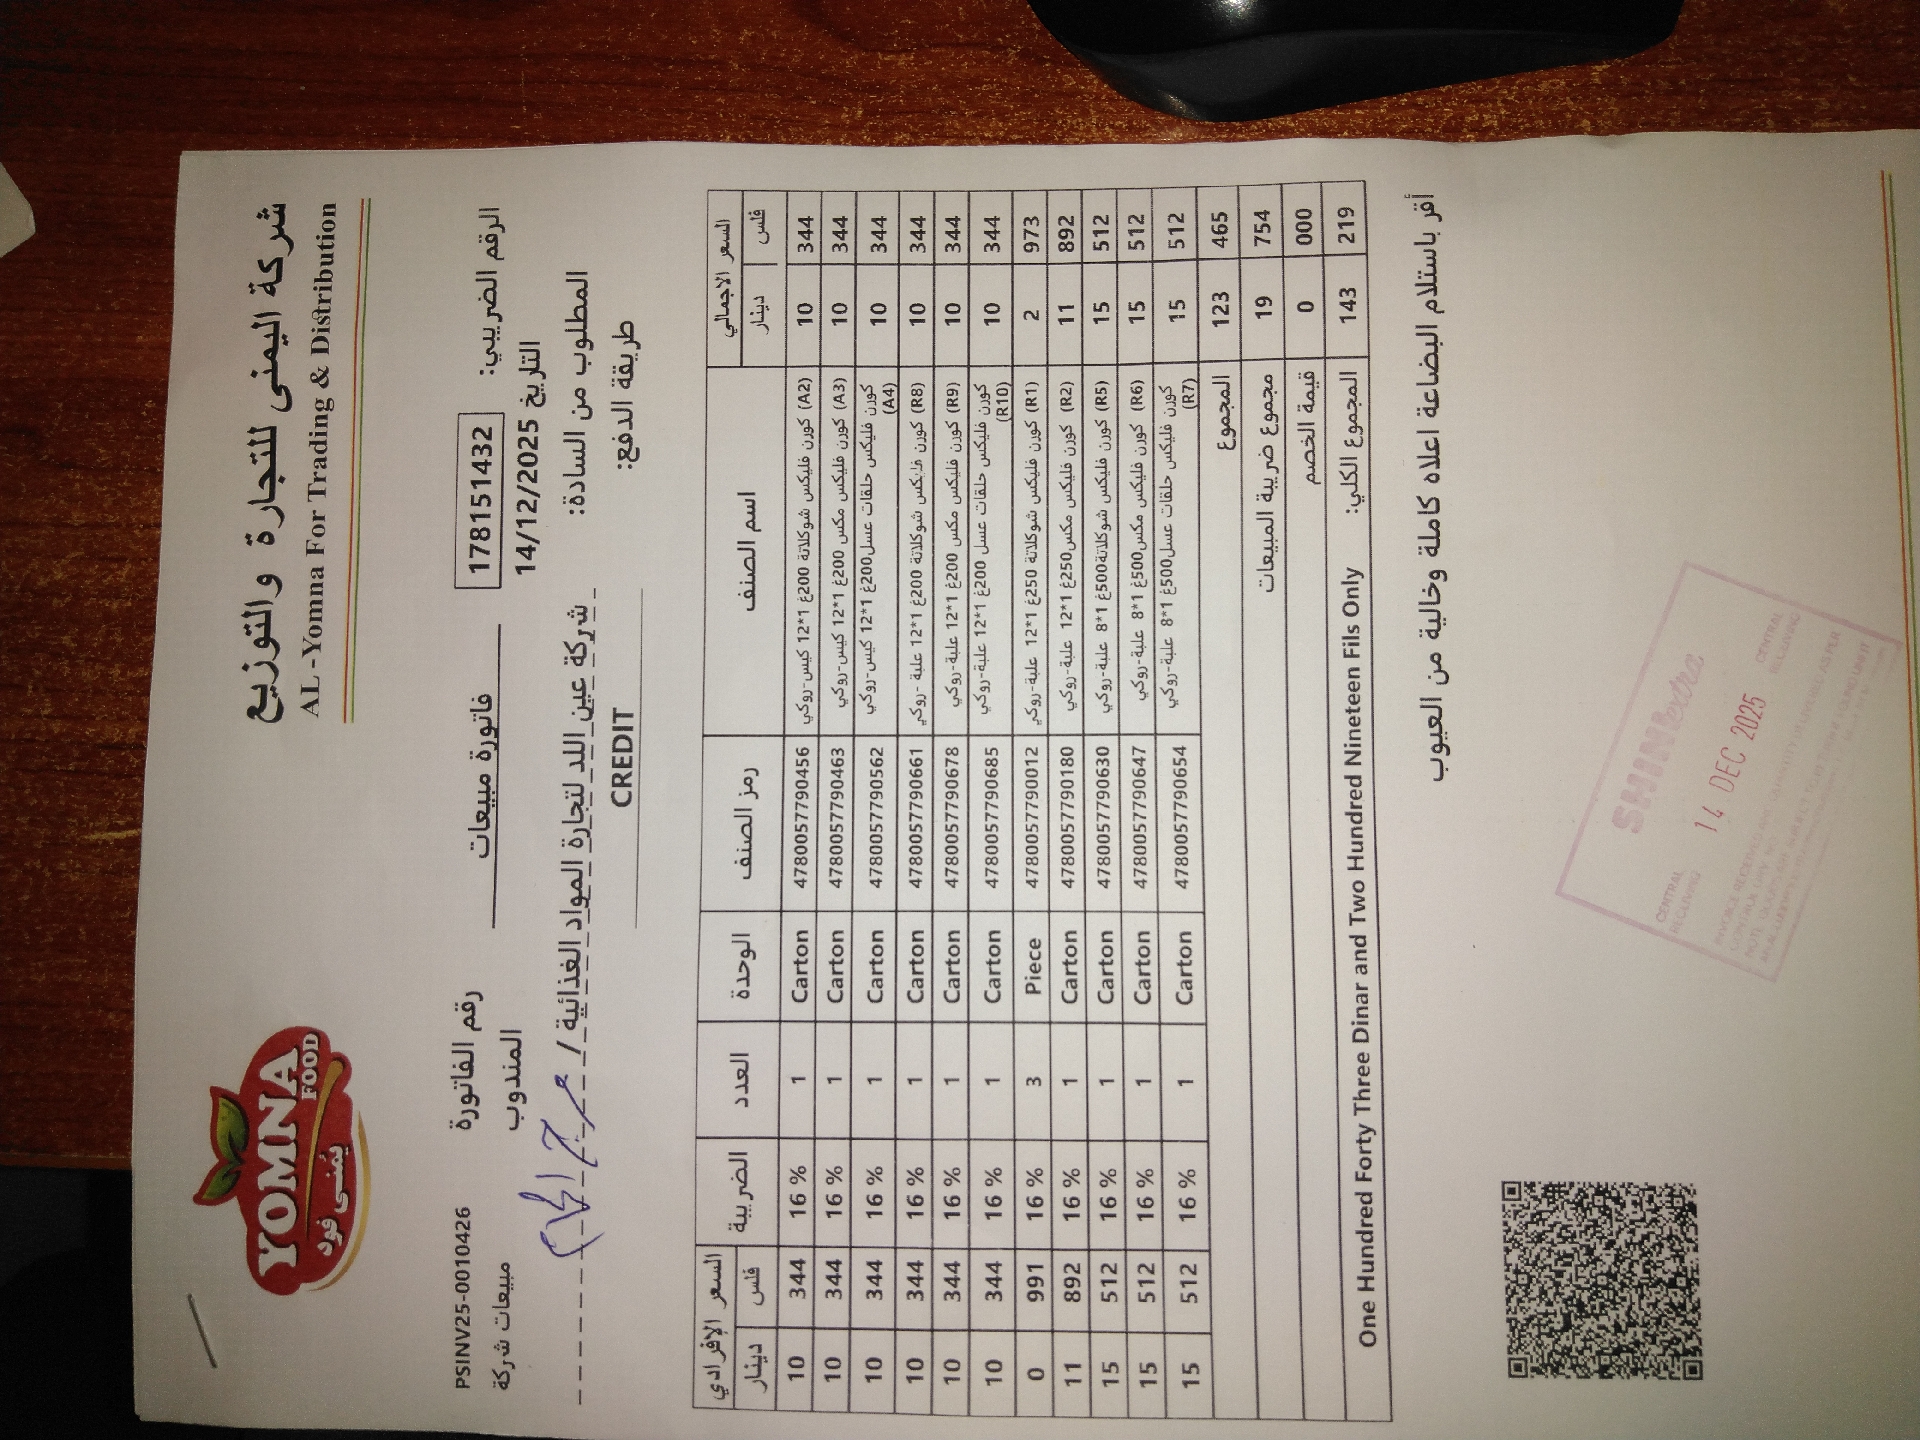 شركة اليمنى للتجارة والتوزيع
AL -Yomna For Trading & Distribution
YOMNA
FOOD
يُمنى فود
الرقم الضريبي: 178151432 فاتورة مبيعات رقم الفاتورة PSINV25-0010426
التاريخ 14/12/2025 المندوب مبيعات شركة
المطلوب من السادة: شركة عين اللد لتجارة المواد الغذائية /
طريقة الدفع: CREDIT
السعر الاجمالي اسم الصنف رمز الصنف الوحدة العدد الضريبة السعر الإفرادي
فلس دينار فلس دينار
344 10 (A2) كورن فليكس شوكلاتة 200غ 1*12 كيس-روكي 4780057790456 Carton 1 16 % 344 10
344 10 (A3) كورن فليكس مكس 200غ 1*12 كيس-روكي 4780057790463 Carton 1 16 % 344 10
344 10 كورن فليكس حلقات عسل200غ 1*12 كيس-روكي (A4) 4780057790562 Carton 1 16 % 344 10
344 10 (R8) كورن فليكس شوكلاتة 200غ 1*12 علبة -روكي 4780057790661 Carton 1 16 % 344 10
344 10 (R9) كورن فليكس مكس 200غ 1*12 علبة-روكي 4780057790678 Carton 1 16 % 344 10
344 10 كورن فليكس حلقات عسل 200غ 1*12 علبة-روكي (R10) 4780057790685 Carton 1 16 % 344 10
973 2 (R1) كورن فليكس شوكلاتة 250غ 1*12 علبة-روكي 4780057790012 Piece 3 16 % 991 0
892 11 (R2) كورن فليكس مكس250غ 1*12 علبة-روكي 4780057790180 Carton 1 16 % 892 11
512 15 (R5) كورن فليكس شوكلاتة500غ 1*8 علبة-روكي 4780057790630 Carton 1 16 % 512 15
512 15 (R6) كورن فليكس مكس500غ 1*8 علبة-روكي 4780057790647 Carton 1 16 % 512 15
512 15 كورن فليكس حلقات عسل500غ 1*8 علبة-روكي (R7) 4780057790654 Carton 1 16 % 512 15
465 123 المجموع
754 19 مجموع ضريبة المبيعات
000 0 قيمة الخصم
219 143 المجموع الكلي: One Hundred Forty Three Dinar and Two Hundred Nineteen Fils Only
أقر باستلام البضاعة اعلاه كاملة وخالية من العيوب
SHINExtra
CENTRAL RECEIVING 14 DEC 2025 CENTRAL RECEIVING